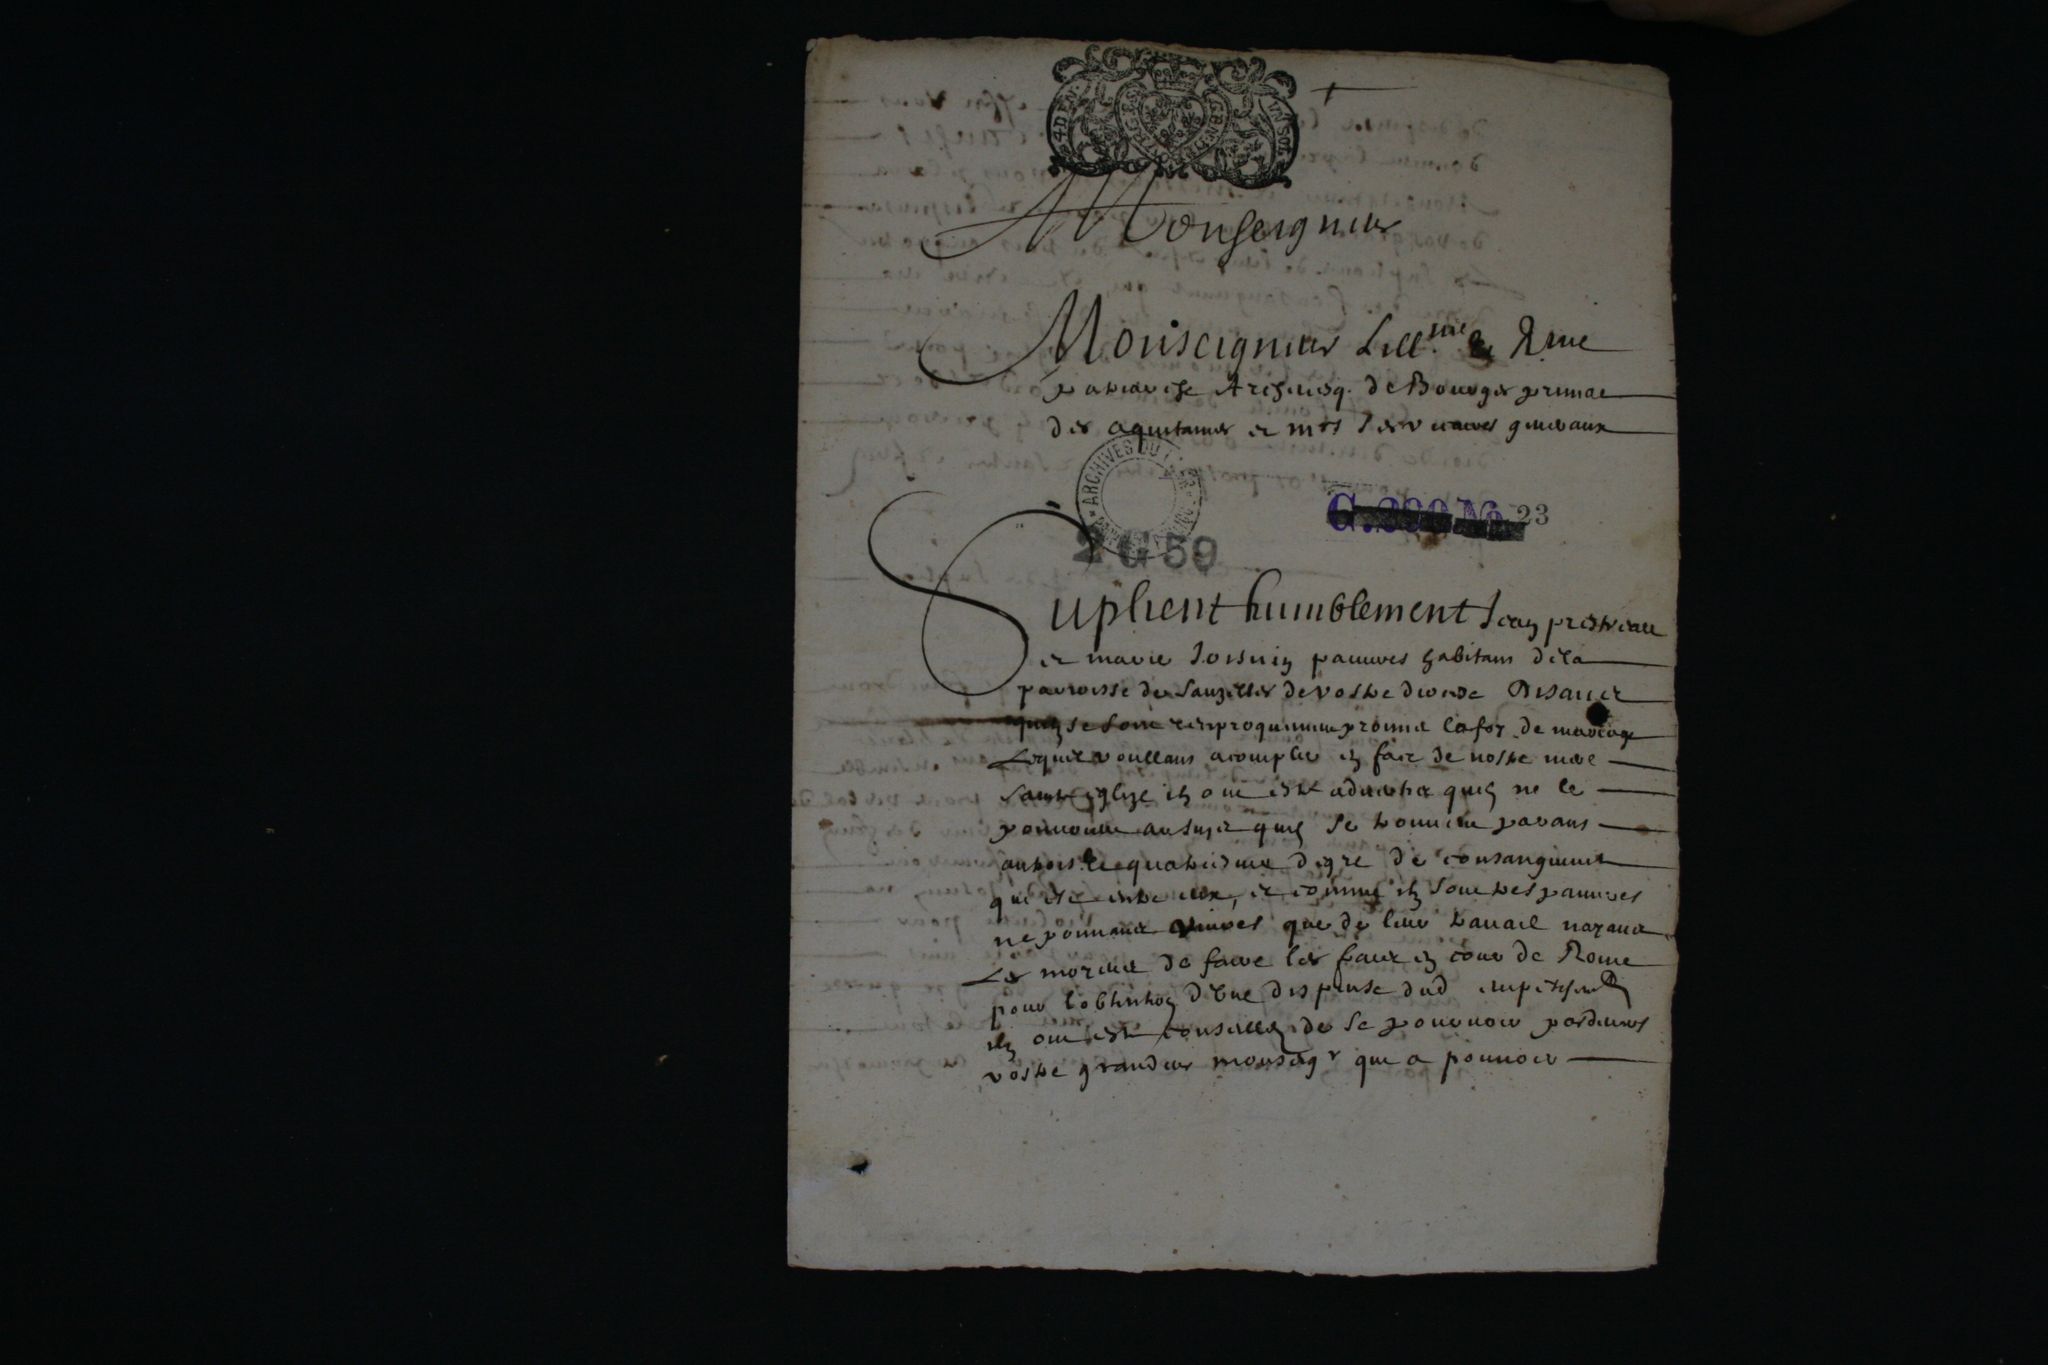 4 DEN.
VN SOL
Monseigneur
Monseigneur Lill.me & Rme
patriarche Archevesq. de Bourges primat
des aquitaines et mrs ses vicaires generaux
ARCHIVES DU
2 G 59
23
Suplient humblement Jean
et marie pauvres habitans de la
parroisse de Sauzelles de vostre diocese Disant
quilz se sont resiproquement promis la foy de mariage
Lequel voullans acomplir en face de nostre mere
Sainte eglize ilz ont este advertis quilz ne le
pouvoint au sujet quilz se trouvent parans
au trois le quatriesme degre de consanguinite
qui est entre eux, et comme ilz sont tres pauvres
ne pouvant vivres que de leur travail nayant
Les moyens de faire les fraix en cour de Rome
pour lobtention dune dispense dud empeschemt
ilz ont este conseillez de se pourvoir pardevers
vostre grandeur monseigr qui a pouvoir